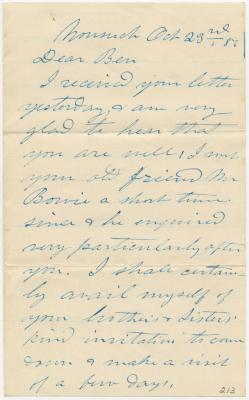 Norwich Oct 23rd
Dear Ben
I receivd your letter
yesterday, & am very
glad to hear that
you are well, I met
your old friend Mr
Bowie a short time
since & he enquired
very particularly after
you. I shall certain-
ly avail myself of
your brothers & Sisters'
kind invitation to come
down & make a visit
of a few days.
213